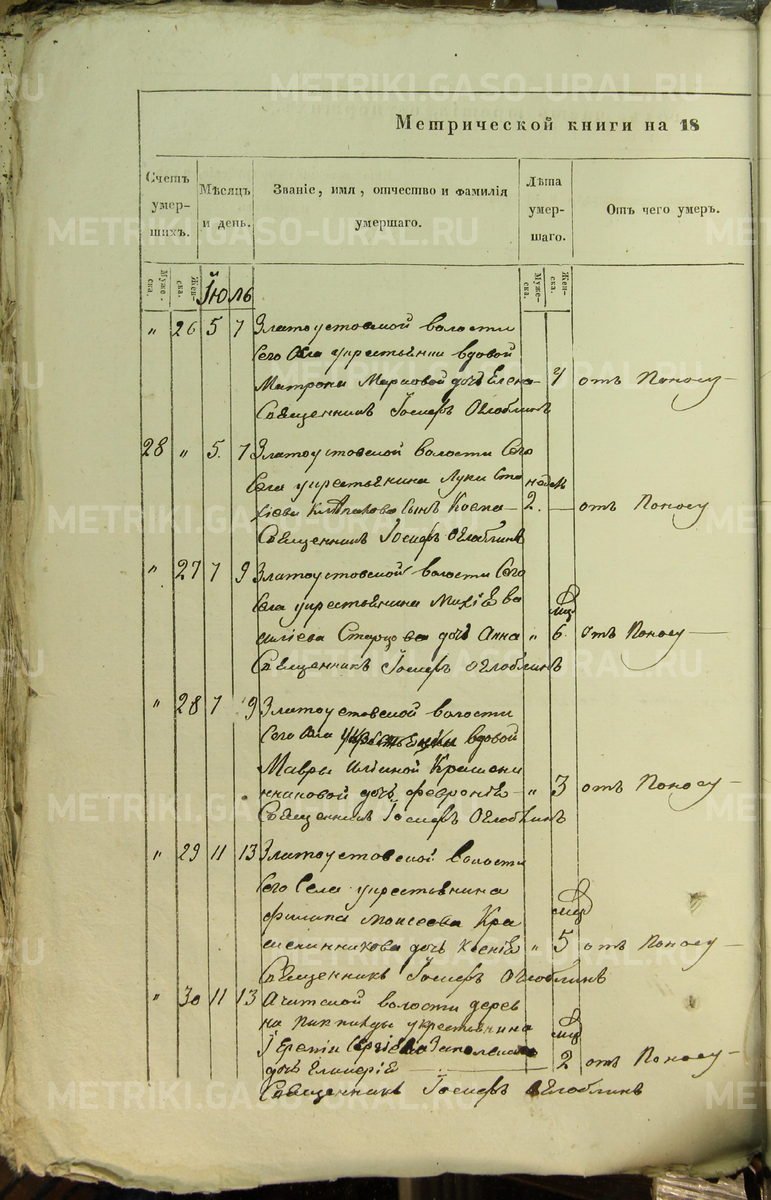 Метрической книги на 18
Счетъ умер-шихъ.
Мѣсяцъ и день.
Званіе, имя, отчество и фамилія умершаго.
Лѣта умер-шаго.
Отъ чего умеръ.
Муже-ска.
Жен-ска.
Муже-ска.
Жен-ска.
Іюль
„ 26 5 7 Златоустовской волости
сего Села у крестьянки вдовой
Матроны Марковой дочь Елена 4 отъ Поносу
Священникъ Іосифъ Оглоблинъ
28 „ 5. 7 Златоустовской волости Сего
Села у крестьянина Луки недѣл
сынъ Косма 2. отъ Поносу
Священникъ Іосифъ Оглоблинъ
„ 27 7 9 Златоустовской волости Сего
Села у крестьянина Ва мѣс
силіева Старцова дочь Анна „ 6. отъ Поносу
Священникъ Іосифъ Оглоблинъ
„ 28 7 9 Златоустовской волости
Сего Села у крестьянки вдовой
Мавры Ильиной Крашени
нниковой дочь Февронія „ 3 отъ Поносу
Священникъ Іосифъ Оглоблинъ
„ 29 11 13 Златоустовской волости
Сего Села у крестьянина
Филипа Моисеева Кра мѣс
шенинникова дочь Ксенія „ 5 отъ Поносу
Священникъ Іосифъ Оглоблинъ
„ 30 11 13 Ачитской волости дерев
ни у крестьянина мѣс
дочь Гликерія 2 отъ Поносу
Священникъ Іосифъ Оглоблинъ
METRIKI.GASO-URAL.RU